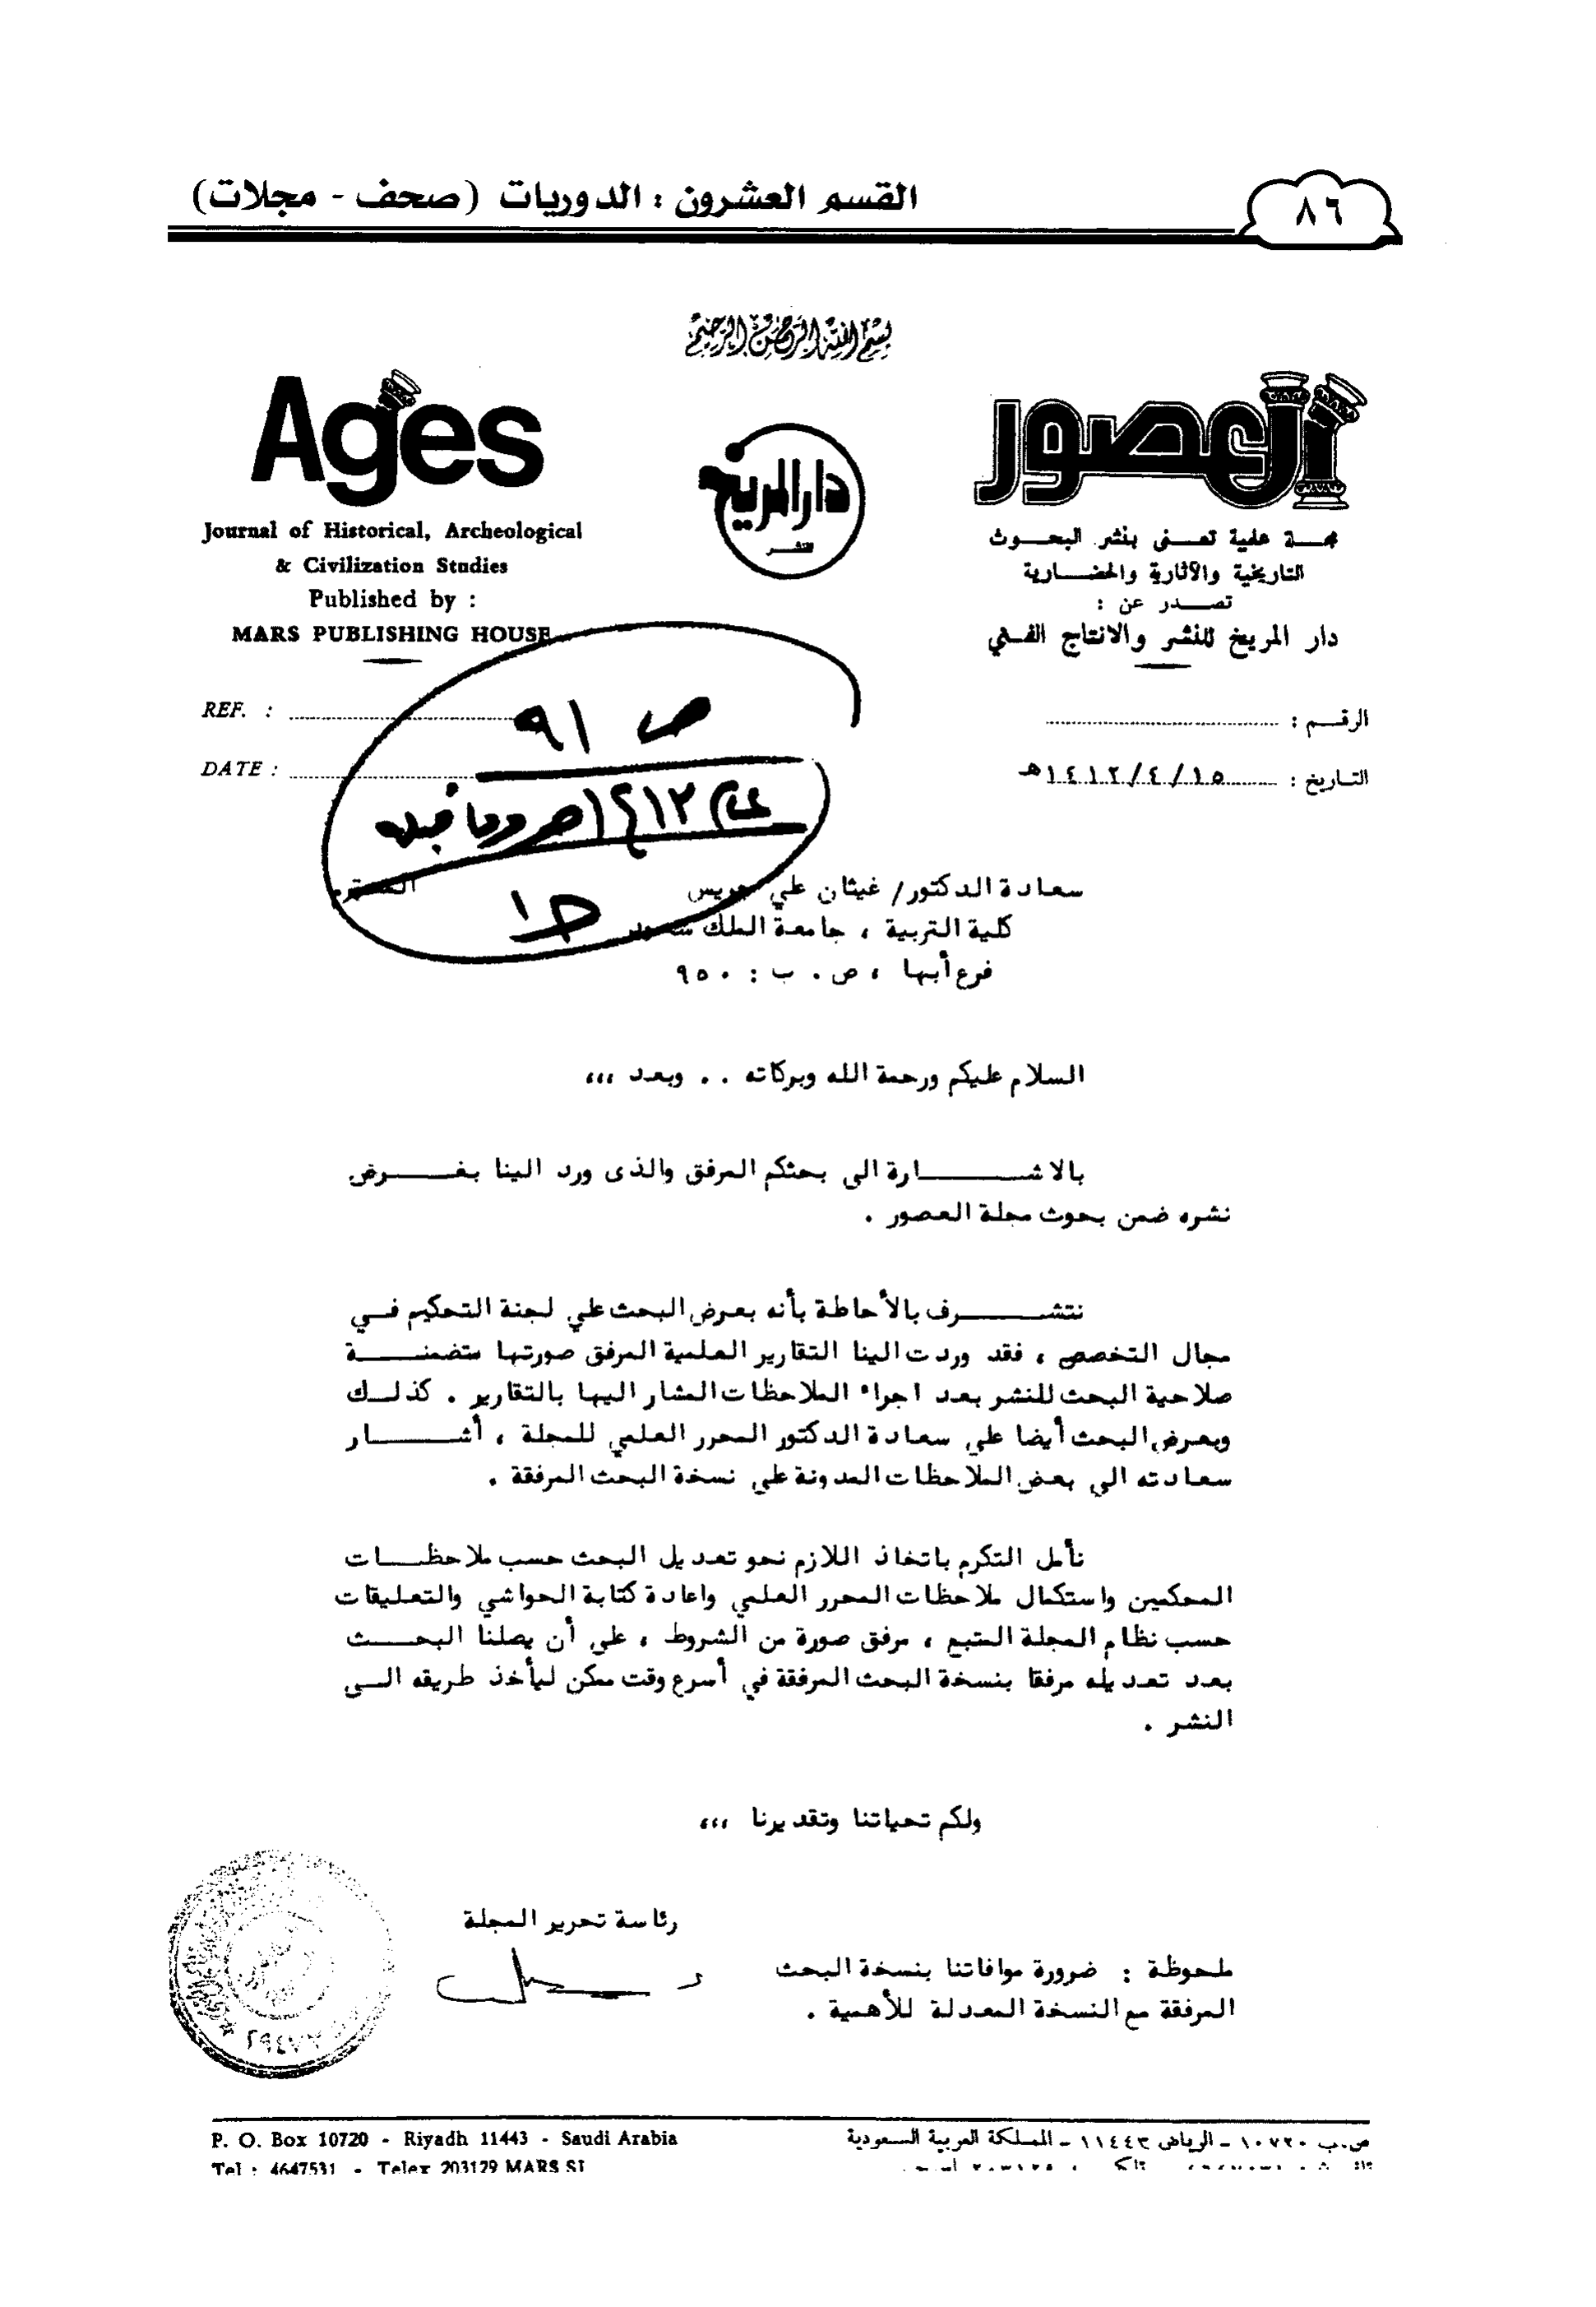 القسم العشرون : الدوريات (صحف - مجلات)
٨٦
بسم الله الرحمن الرحيم
Ages
Journal of Historical, Archeological
& Civilization Studies
Published by :
MARS PUBLISHING HOUSE
دار المريخ
للنشر
العصور
مجلة علمية تعنى بنشر البحوث
التاريخية والآثارية والحضارية
تصدر عن :
دار المريخ للنشر والانتاج الفني
REF. :
DATE :
الرقم :
التاريخ : ١٤١٢/٤/١٥هـ
ص ٩١
عام ١٤١٢هـ وما قبله
سعادة الدكتور/ غيثان علي جريس
كلية التربية ، جامعة الملك سعود
فرع أبها ، ص . ب : ٩٥٠
السلام عليكم ورحمة الله وبركاته . . وبعد ،،،
بالاشارة الى بحثكم المرفق والذى ورد الينا بغرض
نشره ضمن بحوث مجلة العصور .
نتشرف بالأحاطة بأنه بعرض البحث علي لجنة التحكيم في
مجال التخصص ، فقد وردت الينا التقارير العلمية المرفق صورتها متضمنة
صلاحية البحث للنشر بعد اجراء الملاحظات المشار اليها بالتقارير . كذلك
وبعرض البحث أيضا علي سعادة الدكتور المحرر العلمي للمجلة ، أشار
سعادته الي بعض الملاحظات المدونة علي نسخة البحث المرفقة .
نأمل التكرم باتخاذ اللازم نحو تعديل البحث حسب ملاحظات
المحكمين واستكمال ملاحظات المحرر العلمي واعادة كتابة الحواشي والتعليقات
حسب نظام المجلة المتبع ، مرفق صورة من الشروط ، علي أن يصلنا البحث
بعد تعديله مرفقا بنسخة البحث المرفقة في أسرع وقت ممكن ليأخذ طريقه الى
النشر .
ولكم تحياتنا وتقديرنا ،،،
رئاسة تحرير المجلة
ملحوظة : ضرورة موافاتنا بنسخة البحث
المرفقة مع النسخة المعدلة للأهمية .
P. O. Box 10720 - Riyadh 11443 - Saudi Arabia
Tel : 4647531 - Telex 203129 MARS SJ
ص.ب ١٠٧٢٠ - الرياض ١١٤٤٣ - المملكة العربية السعودية